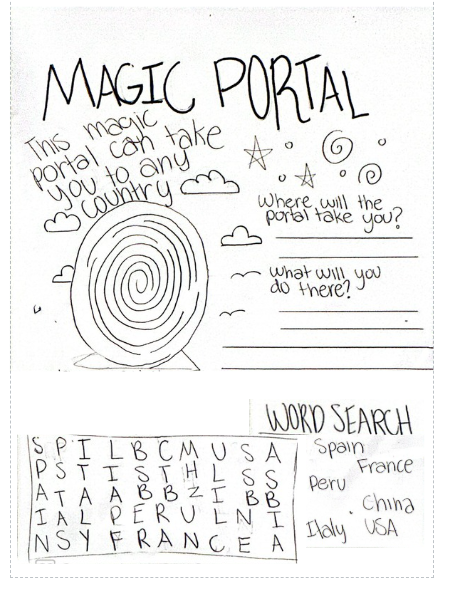 MAGIC PORTAL
This magic
portal can take
you to any
country
Where will the
portal take you?
What will you
do there?
WORD SEARCH
Spain
France
Peru
China
Italy USA
S P I L B C M U S A
P S T I S T H L S S
A T A A B B Z I B B
I A L P E R U L N I
N S Y F R A N C E A